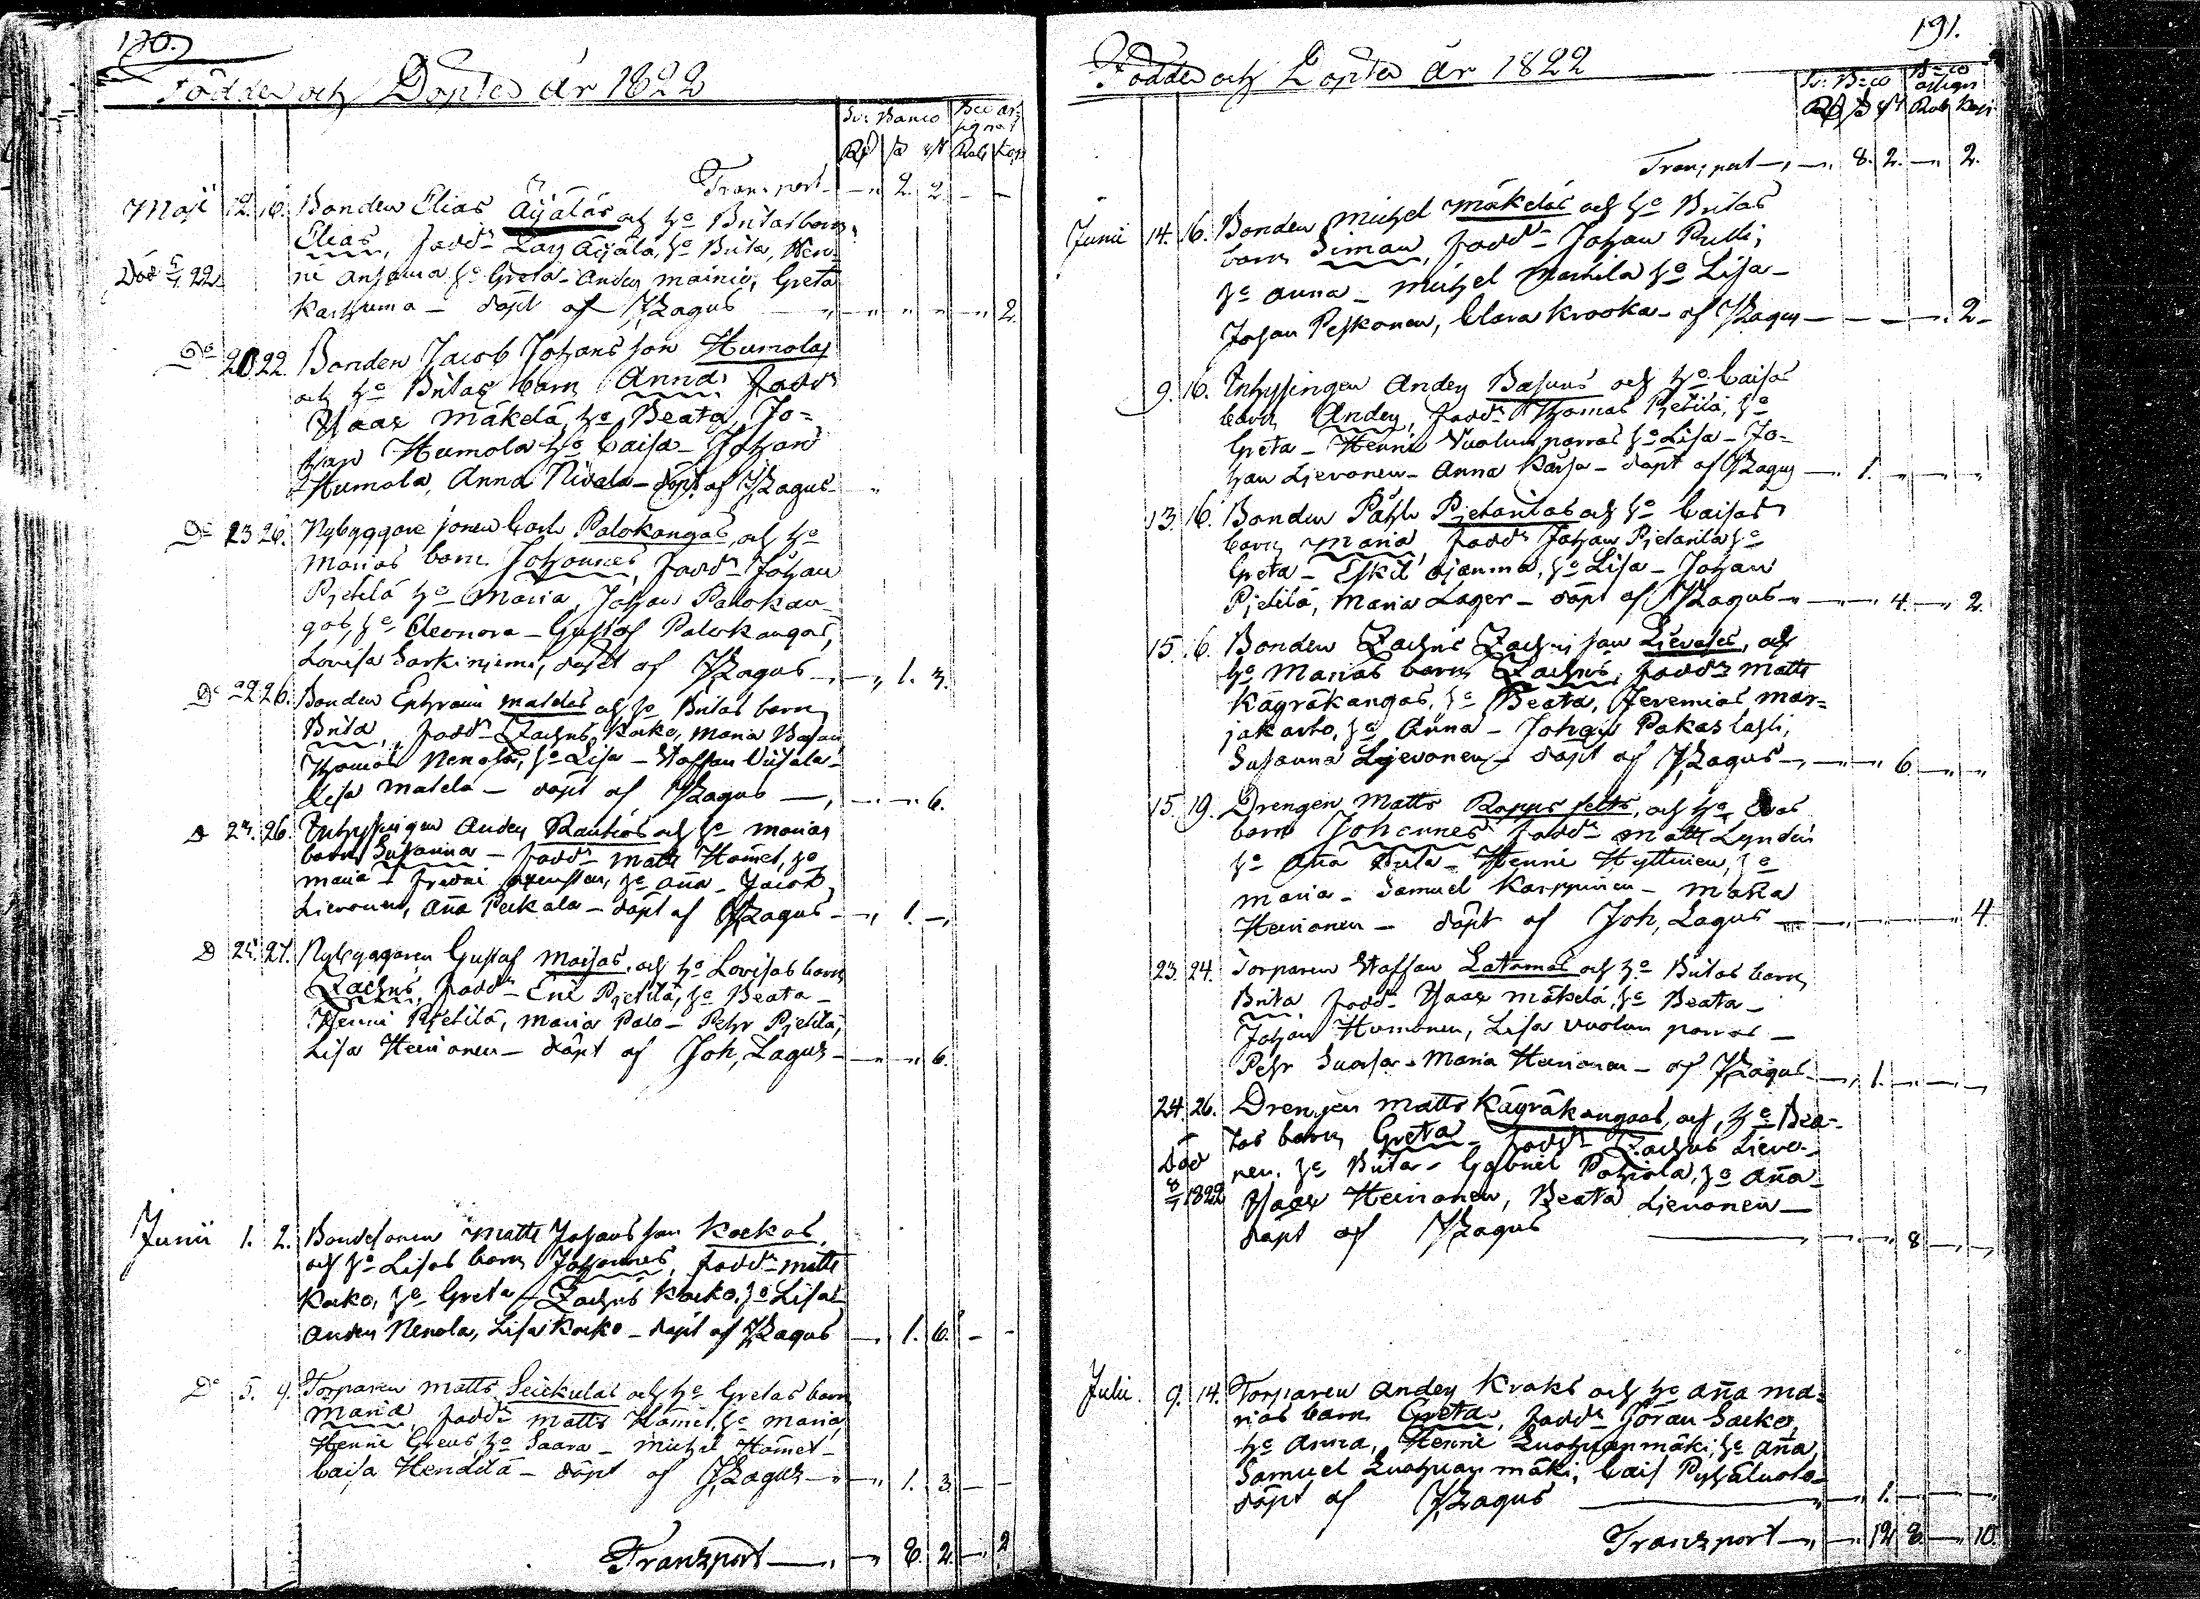 190.
Födde och Döpte År 1822
Sv: Banco Bco as:
signat
Rd ß rst Rub kop
Transport — „ 2. 2. — —
Maji 12. 16. Bonden Elias Äijäläs och h:o Britas barn
Elias, fadd: Lars Äijälä, h:o Brita, Hen-
ri h:o Greta - Anders Greta
Död 22
Karhuma — döpt af J Lagus — 2
D:o 20 22. Bonden Jacob Johansson Humolas
och h:o Britas barn Anna, fadd:
Isaac Mäkelä, h:o Beata, Jo=
han Humola h:o Caisa — Johan
Humola, Anna Nivala — döpt af J Lagus
D:o 23 26. Nybyggare sonen Carls Palokangas och h:o
Marias barn Johannes, fadd: Johan
Pietilä h:o Maria, Johan Palokan-
gas, h:o Eleonora — Gustaf Palokangas,
Lovisa Sarkiniemi, döpt af J Lagus — 1. 3.
D:o 22 26. Bonden Ephraim Matelas och h:o Britas barn
Brita, fadd: Zachris Korko, Maria
Thomas Nenola, h:o Lisa — Staffan
Lisa Matela — döpt af J Lagus — 6.
D 24. 26. Inhysingen Anders Rautios och h:o Marias
barn Susanna — fadd: Matts Hamet, h:o
Maria — h:o Aña — Jacob
Lievonen, Aña Peckala — döpt af J Lagus — 1. —
D 25. 27. Nybyggaren Gustaf Maijas, och h:o Lovisas barn
Zachris, fadd: Eric Pietilä, h:o Beata —
Henric Pietilä, Maria Palo — Pehr Pietilä,
Lisa Heinonen — döpt af Joh, Lagus — 6.
Junii 1. 2. Bondesonen Matts Johansson Korkos,
och h:o Lisas barn Johannes, fadd: Matts
Korko, h:o Greta — Zachris Korko, h:o Lisa
Anders Nenola, Lisa Korko — döpt af J Lagus — 1. 6. — —
D:o 5. 9. Torparen Matts Leickulas och h:o Gretas barn
Maria, fadd: Matts Hamet, h:o Maria,
Henric Greus h:o Saara — Michel Hamet —
Caisa Hendilä — döpt af J Lagus — 1. 3. — —
Transport — 8. 2. — 2
191.
Födde och Döpte År 1822
Sv: B:co B:co
assign
Rd ß rst Rub kop
Transport — „ 8. 2. — 2.
Junii 14. 16. Bonden Michel Mäkeläs och h:o Britas
barn Simon, fadd: Johan Pulli,
h:o Anna — Michel Marttila h:o Lisa —
Johan Peskonen, Clara Krooka — af J Lagus — 2 —
9. 16. Inhysingen Anders Basuns och h:o Caisas
barn Anders, fadd: Thomas Pietilä, h:o
Greta — Henric Vuolunparras h:o Lisa — Jo=
han Lievonen — Anna Kärsa — döpt af J Lagus — 1. —
13. 16. Bonden Påhls Pietarilas och h:o Caisas
barn Maria, fadd: Johan Pietarila h:o
Greta — Eskil Ojanma, h:o Lisa — Johan
Pietilä, Maria Lager — döpt af J Lagus — 4. — 2.
15. 16. Bonden Zachris Zachrisson Lievoses, och
h:o Marias barn Zachris, fadd: Matts
Kägräkangas, h:o Beata, Jeremias Mar=
jakarto, h:o Anna — Johan Pakaslahti,
Susanna Lievonen — döpt af J Lagus — 6 —
15. 19. Drengen Matts Roppos felts, och h:o Evas
barn Johannes fadd: Matts Lyndin
h:o Aña — Henric Hyttinen, h:o
Maria — Samuel Karppinen — Maria
Heinonen — döpt af Joh, Lagus — 4.
23. 24. Torparen Staffan Latomas och h:o Britas barn
Brita, fadd: Isaac Mäkelä, h:o Beata —
Johan Humonen, Lisa Vuolun parras —
Pehr Suorsa — Maria Heinonen — af J Lagus — 1. —
24 26. Drengen Matts Kägräkangas, och h:o Bea-
tas barn Greta — fadd: Zachris Lievo-
Död nen, h:o Brita — Gabriel Pohjola, h:o Aña —
8/7 1822 Isaac Heinonen, Beata Lievonen —
döpt af J Lagus — 8 —
Julii 9. 14. Torparen Anders Kraks och h:o Aña Ma=
rias barn Greta, fadd: Jöran Sacko,
h:o Anna, Henric Luohuanmäki, h:o Aña,
Samuel Luohuanmäki, Cais Pyhäluoto —
döpt af J Lagus — 1. —
Transport — „ 12 8. — 10.